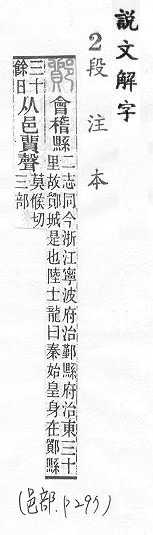 說文解字
2 段注本
鄮 會稽縣
二志同今浙江寧波府治鄞縣府治東三十
里故鄮城是也陸士龍曰秦始皇身在鄮縣
三十
餘日
从邑貿聲
莫候切
三部
(邑部. P295)